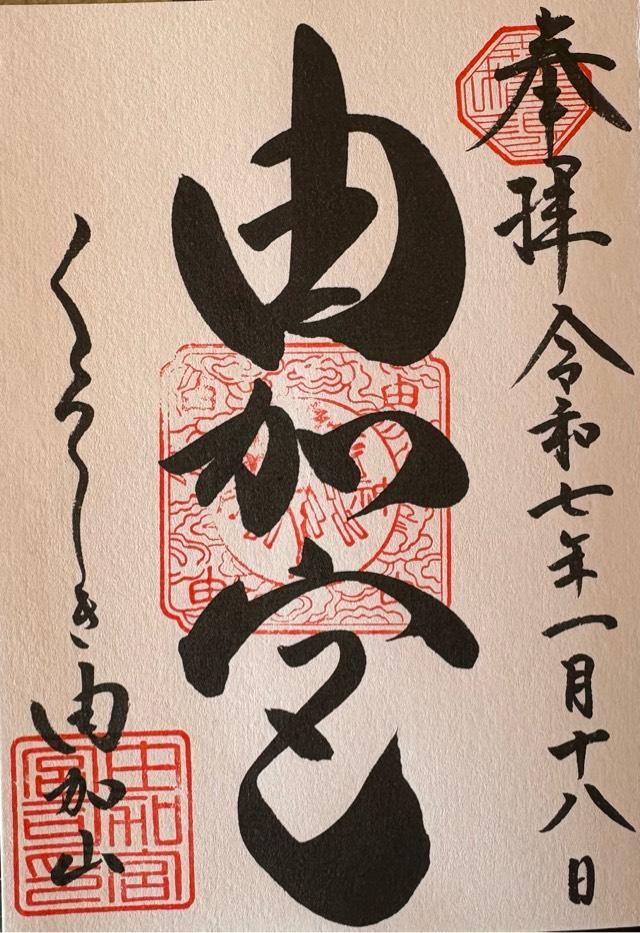 奉拝 令和七年一月十八日
由加宮
くらしき 由加山